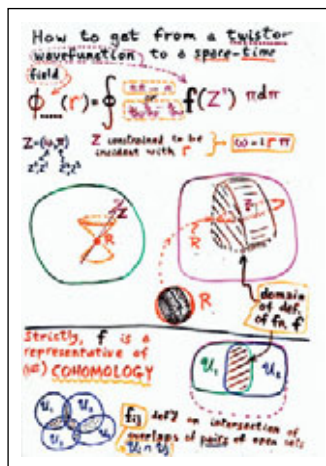 How to get from a twistor
wavefunction to a space-time
field
ϕ.....(r) = ∮ f(Z') πdπ
Z=(ω,π)
Z constrained to be
incident with r
ω=irπ
Z
R
R
Z
R
domain
of def.
of fn. f
Strictly, f is a
representative of
COHOMOLOGY
U₁ U₂
fij def'd on intersection of
overlaps of pairs of open sets
Ui ∩ Uj